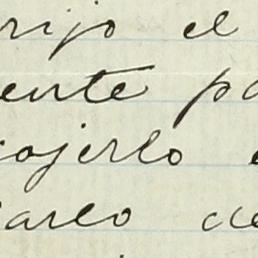 rijo el
ente pa
ojerlo
arlo de